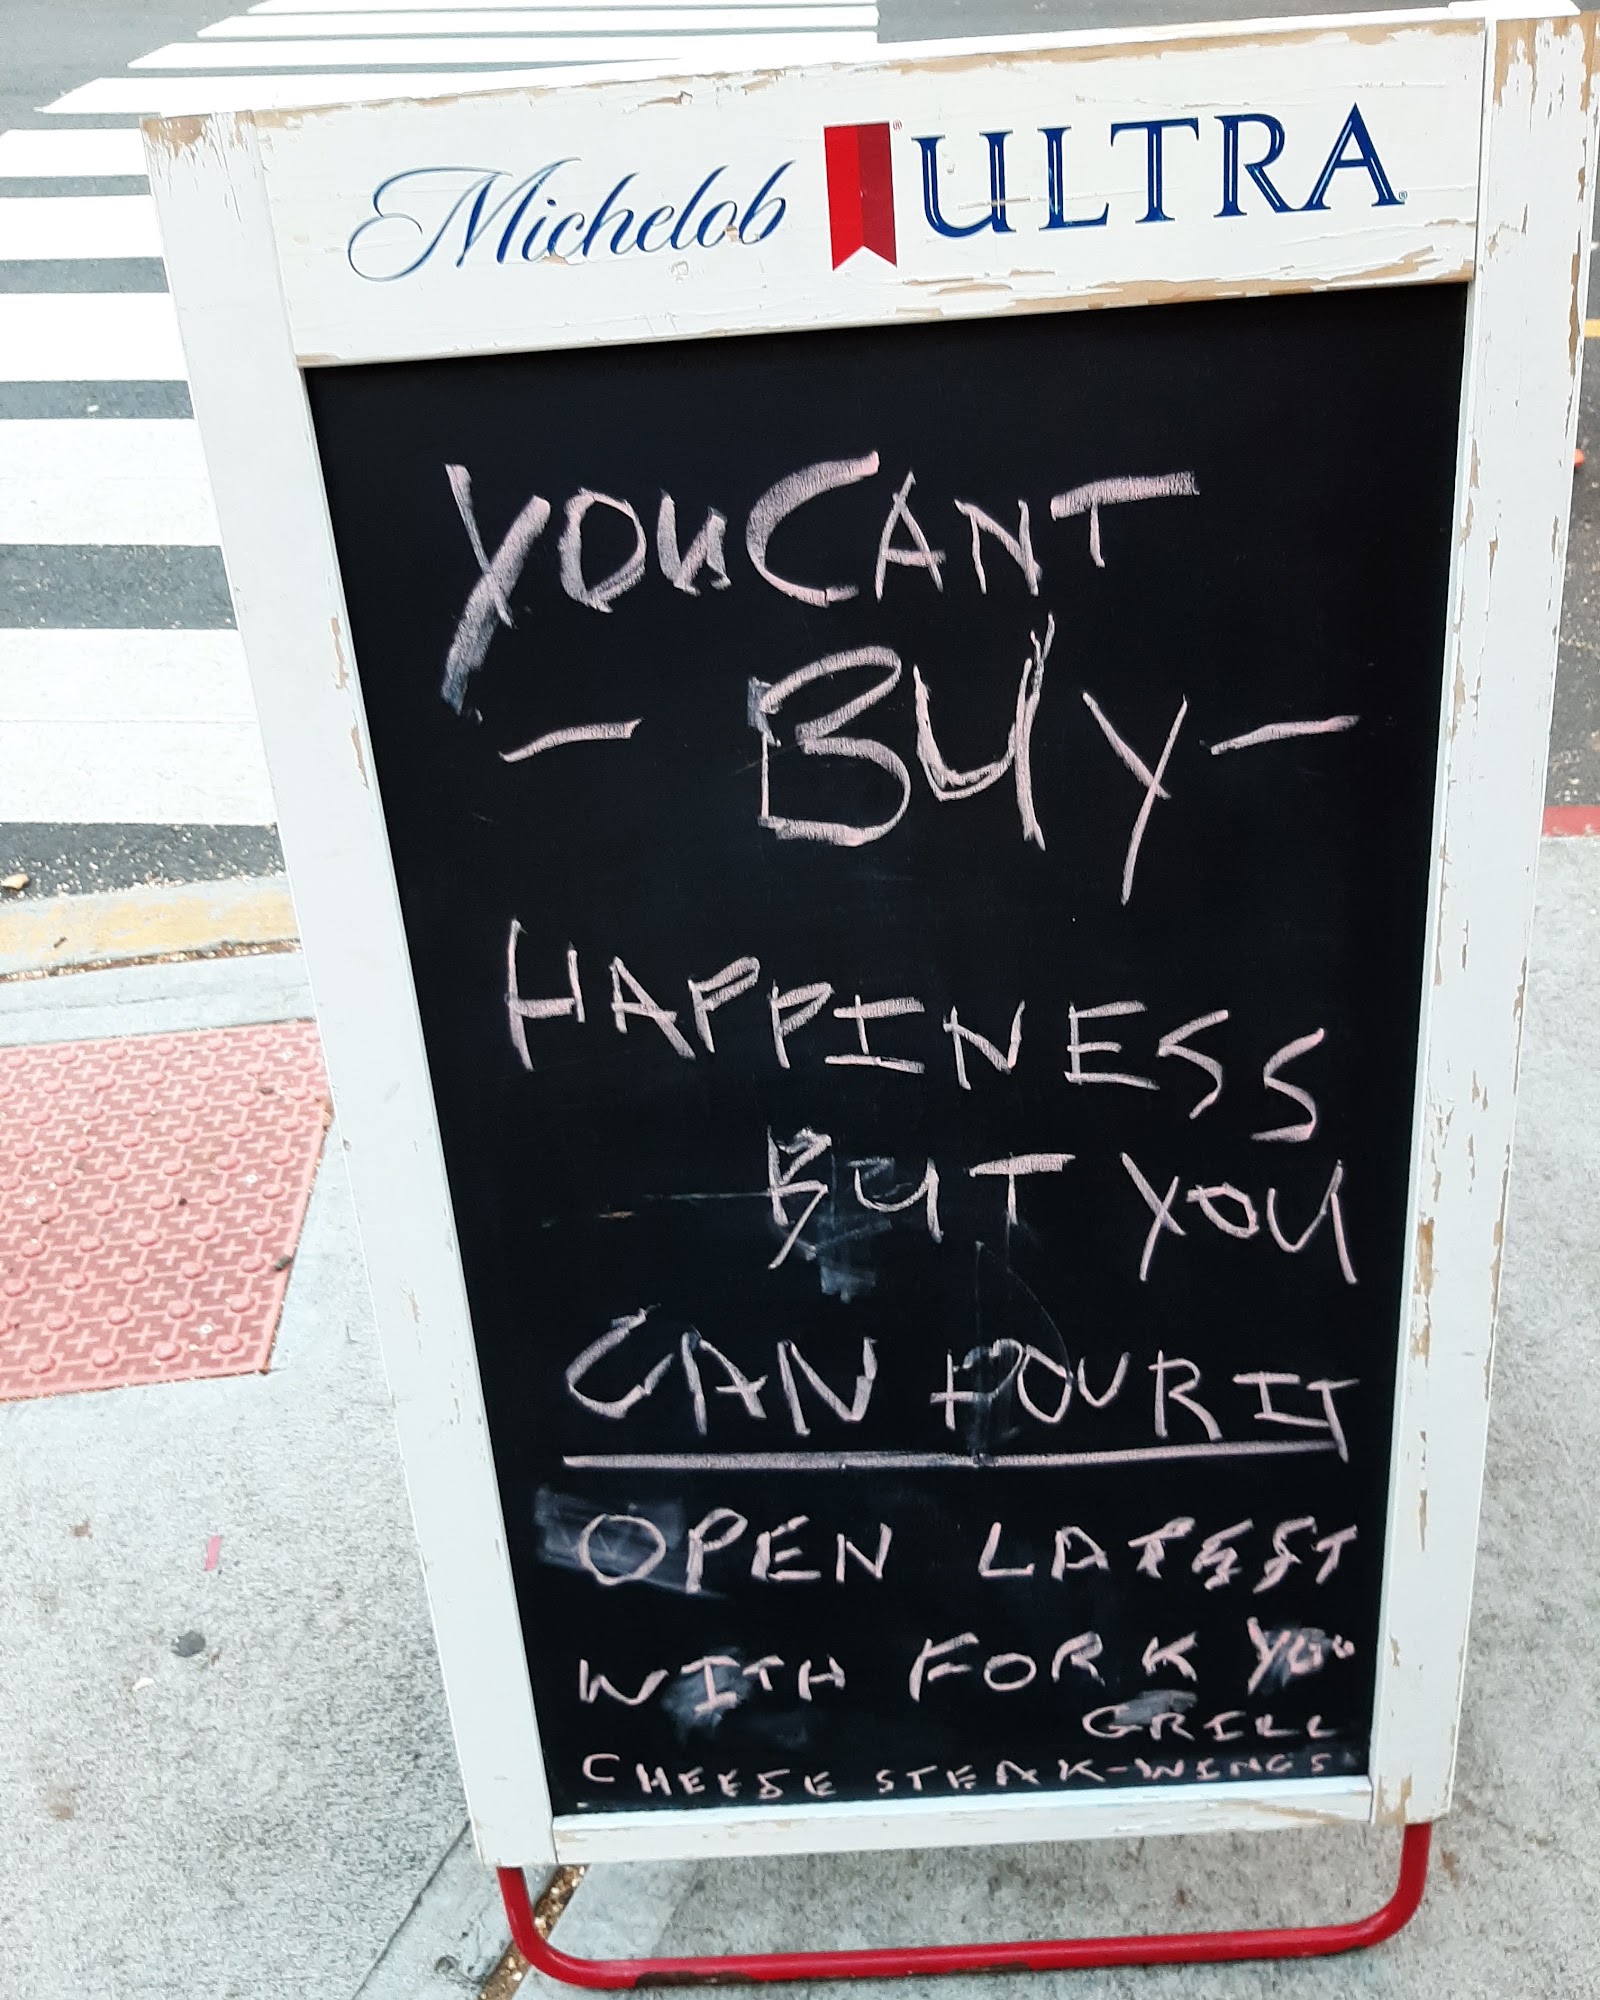 Michelob ULTRA
YOU CANT
- BUY -
HAPPINESS
BUT YOU
CAN POUR IT
OPEN LATEST
WITH FORK YOU
GRILL
CHEESE STEAK-WINGS